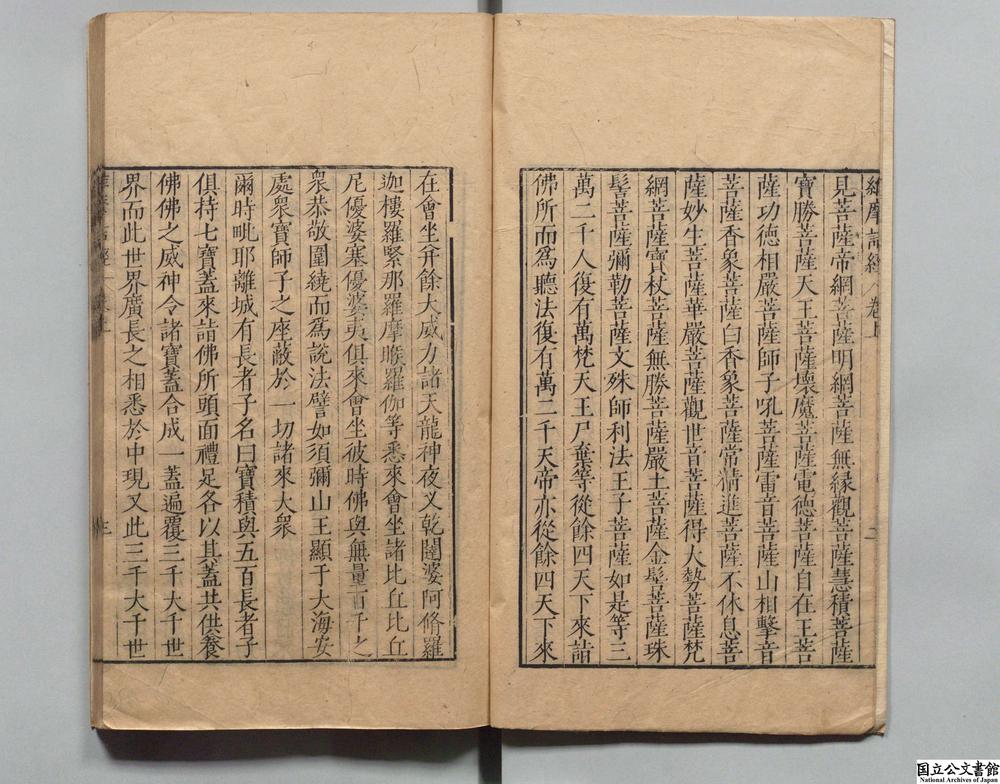 維摩詰經 卷上
見菩薩帝網菩薩明網菩薩無縁觀菩薩慧積菩薩
寶勝菩薩天王菩薩壞魔菩薩電德菩薩自在王菩
薩功德相嚴菩薩師子吼菩薩雷音菩薩山相擊音
菩薩香象菩薩白香象菩薩常精進菩薩不休息菩
薩妙生菩薩華嚴菩薩觀世音菩薩得大勢菩薩梵
網菩薩寶杖菩薩無勝菩薩嚴土菩薩金髻菩薩珠
髻菩薩彌勒菩薩文殊師利法王子菩薩如是等三
萬二千人復有萬梵天王尸棄等從餘四天下來詣
佛所而爲聽法復有萬二千天帝亦從餘四天下來
在會坐并餘大威力諸天龍神夜叉乾闥婆阿脩羅
迦樓羅緊那羅摩睺羅伽等悉來會坐諸比丘比丘
尼優婆塞優婆夷俱來會坐彼時佛與無量百千之
衆恭敬圍繞而爲説法譬如須彌山王顯于大海安
處衆寶師子之座蔽於一切諸來大衆
爾時毗耶離城有長者子名曰寶積與五百長者子
俱持七寶蓋來詣佛所頭面禮足各以其蓋共供養
佛佛之威神令諸寶蓋合成一蓋遍覆三千大千世
界而此世界廣長之相悉於中現又此三千大千世
国立公文書館
National Archives of Japan